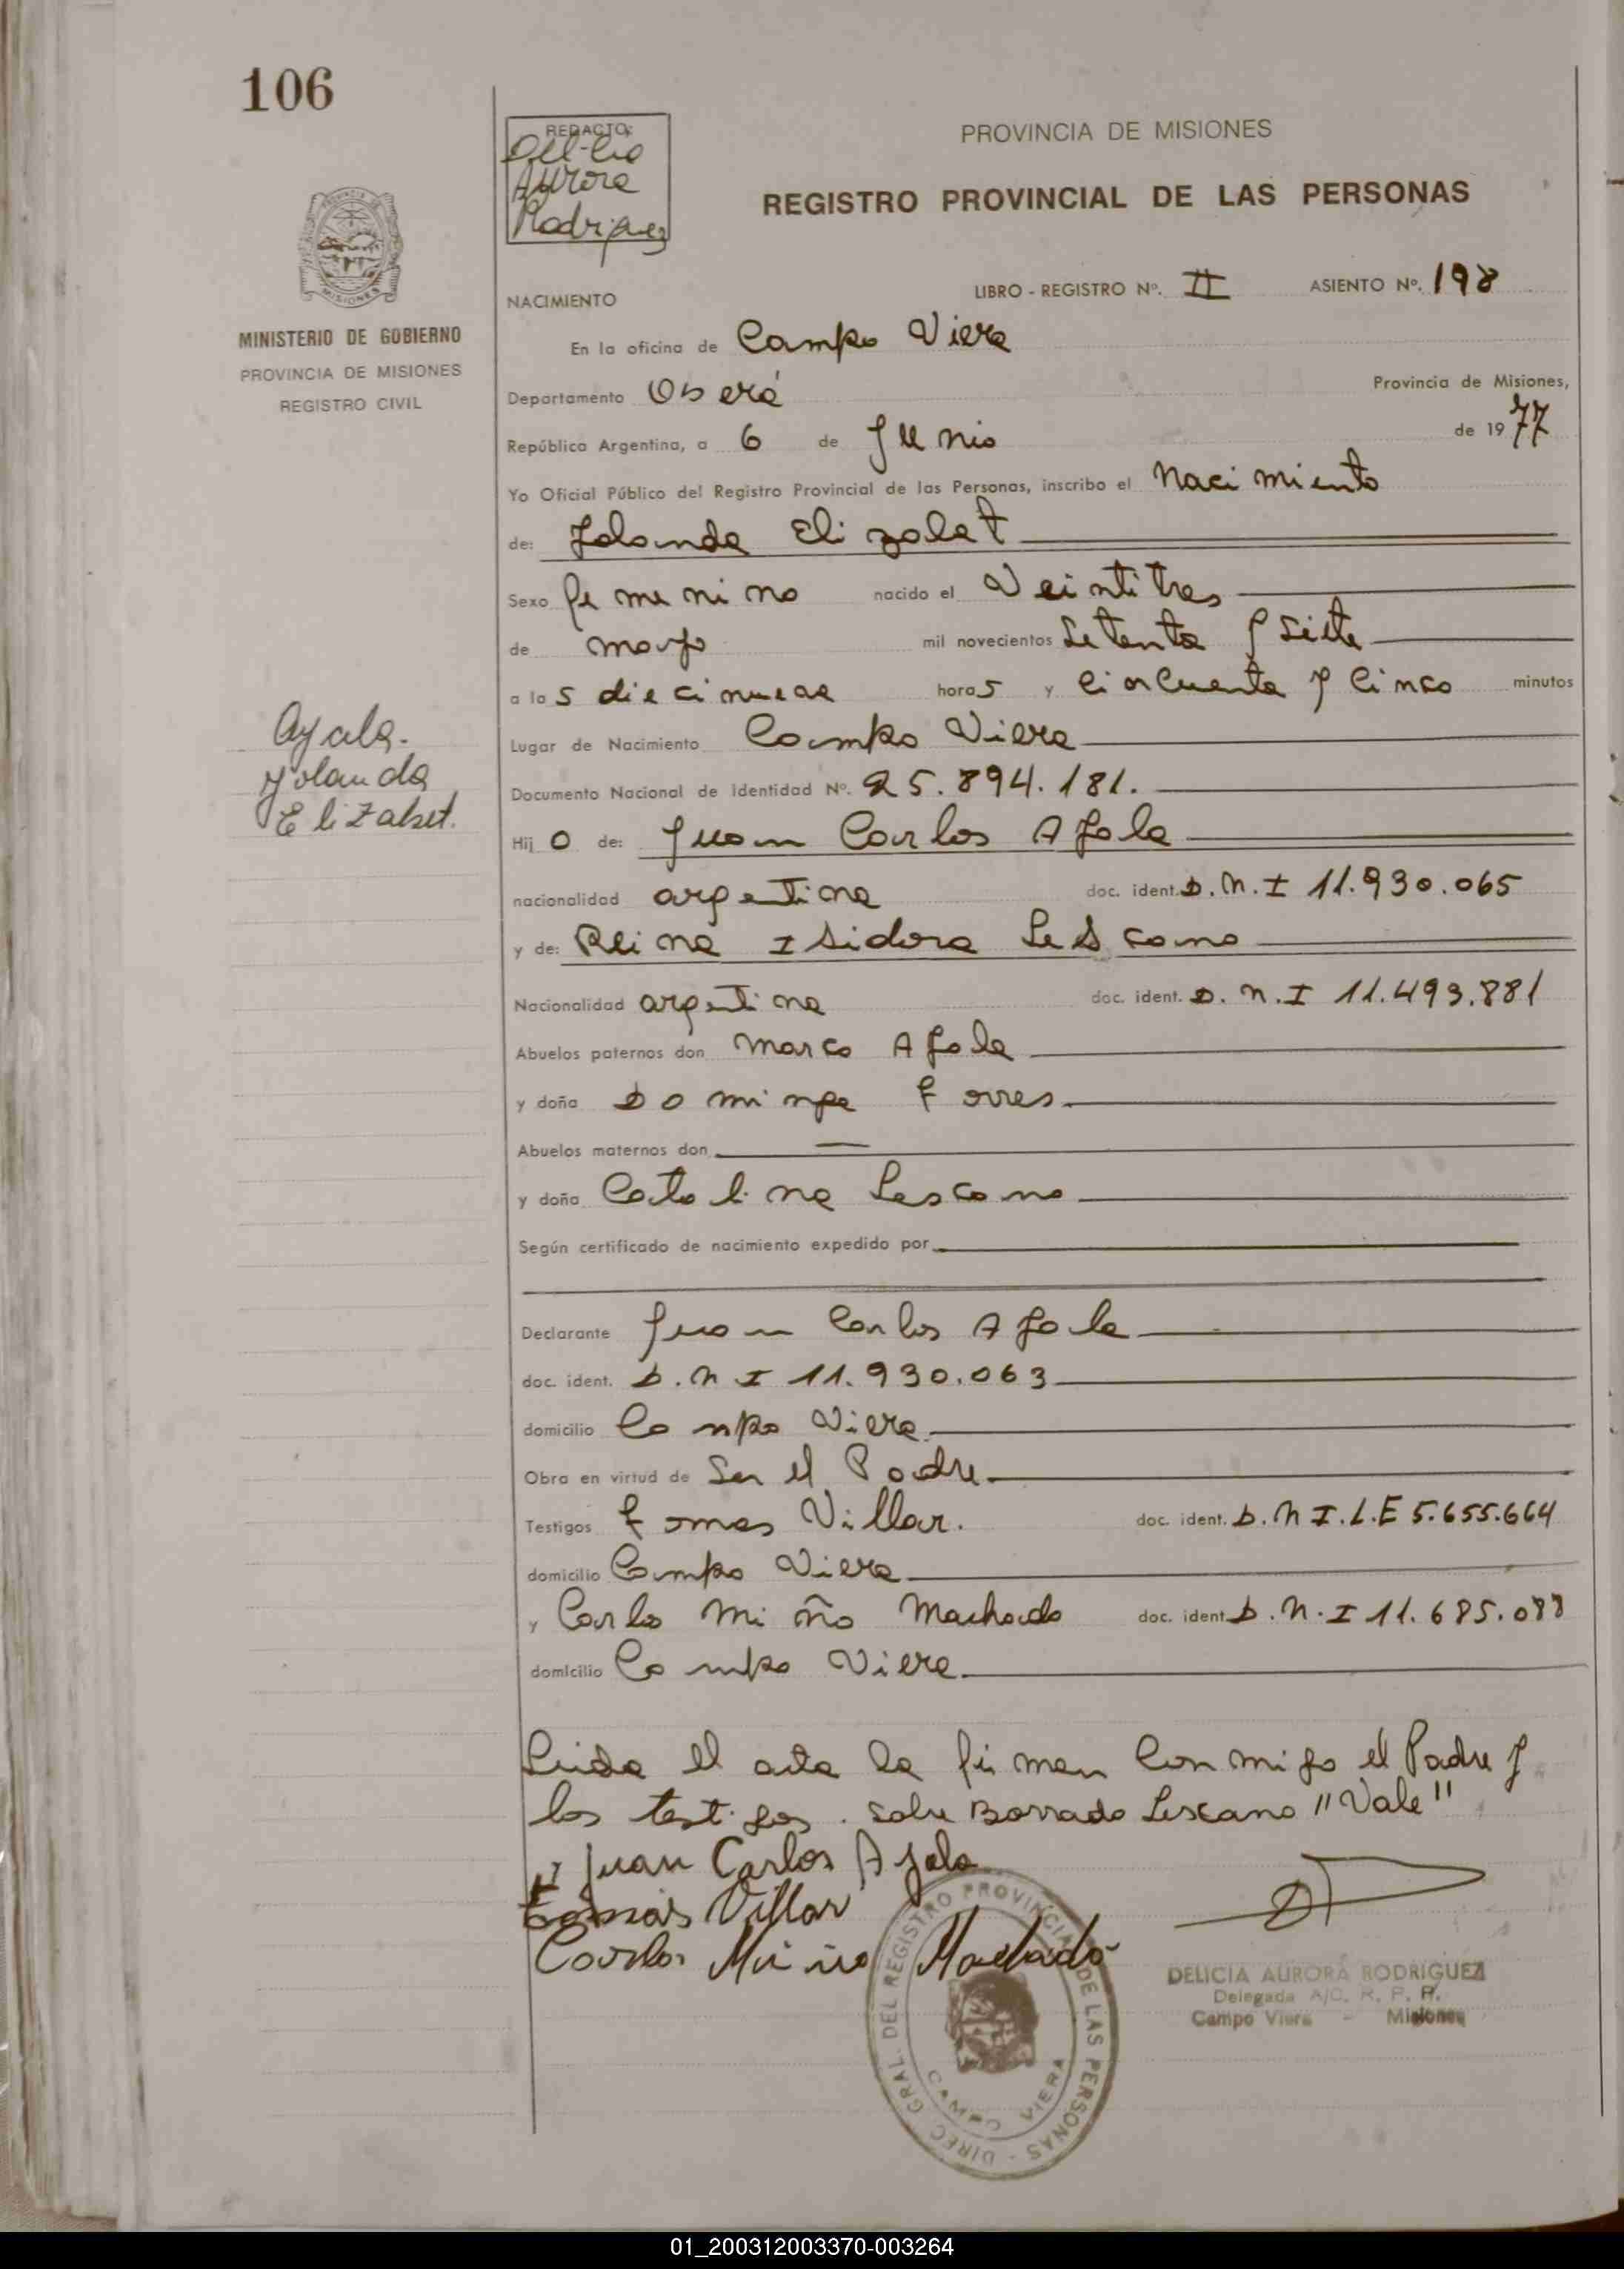 106
REDACTO:
Aurora
Rodriguez
PROVINCIA DE MISIONES
REGISTRO PROVINCIAL DE LAS PERSONAS
MISIONES
MINISTERIO DE GOBIERNO
PROVINCIA DE MISIONES
REGISTRO CIVIL
NACIMIENTO
LIBRO - REGISTRO Nº. II ASIENTO Nº. 198
En la oficina de Campo Viera
Departamento Oberá Provincia de Misiones,
República Argentina, a 6 de Junio de 1977
Yo Oficial Público del Registro Provincial de las Personas, inscribo el Nacimiento
de: Yolanda Elizabet
Sexo femenino nacido el Veintitres
de mayo mil novecientos Setenta y Siete
a las diecinueve horas y Cincuenta y Cinco minutos
Lugar de Nacimiento Campo Viera
Documento Nacional de Identidad Nº. 25.894.181.
Hijo de: Juan Carlos Ayala
nacionalidad argentina doc. ident. D.N.I 11.930.065
y de: Reina Isidora Lescano
Nacionalidad argentina doc. ident. D.N.I 11.493.881
Abuelos paternos don Marco Ayala
y doña Dominga Torres
Abuelos maternos don —
y doña Catalina Lescano
Según certificado de nacimiento expedido por
Declarante Juan Carlos Ayala
doc. ident. D.N I 11.930.063
domicilio Campo Viera
Obra en virtud de Ser el Padre
Testigos Tomas Villar. doc. ident. D.N I.L.E 5.655.664
domicilio Campo Viera
y Carlo Miño Machado doc. ident D.N.I 11.685.088
domicilio Campo Viera
Leida el acta la firman Conmigo el Padre y
los testigos. Sobre Borrado Lescano "Vale"
Juan Carlos Ayala
Tomas Villar
Carlos Miño Machado
Ayala.
Yolanda
Elizabet.
DIREC. GRAL. DEL REGISTRO PROVINCIAL DE LAS PERSONAS -
CAMPO VIERA
DELICIA AURORA RODRIGUEZ
Delegada A/C. R. P. P.
Campo Viera - Misiones
01_200312003370-003264